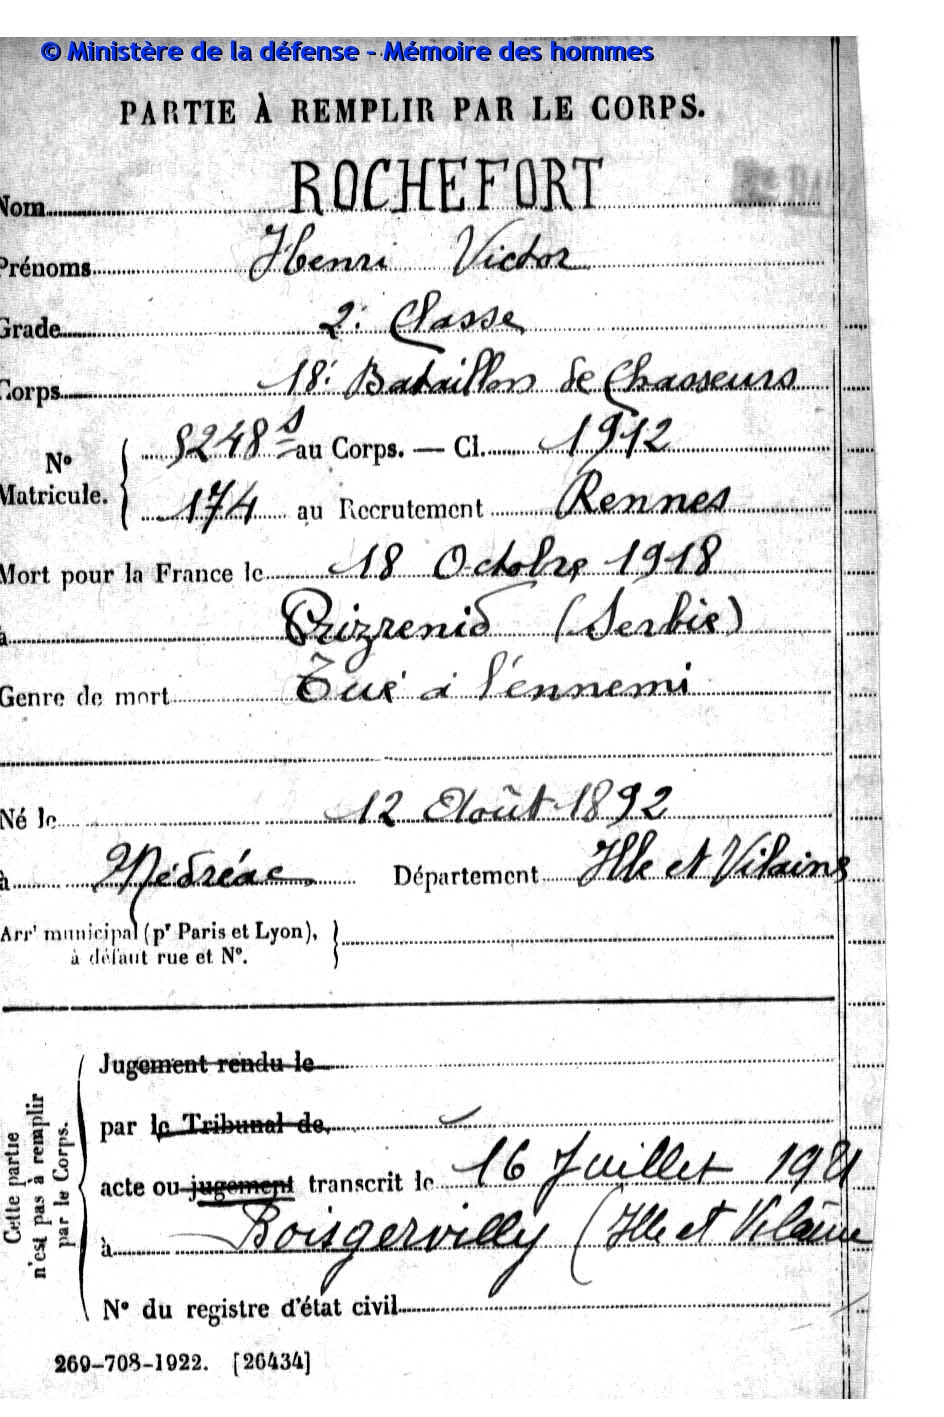 © Ministère de la défense - Mémoire des hommes
PARTIE À REMPLIR PAR LE CORPS.
Nom ROCHEFORT
Prénoms Henri Victor
Grade 2e Classe
Corps 18e Bataillon de Chasseurs
N° Matricule. 9248 s au Corps. — Cl. 1912
174 au Recrutement Rennes
Mort pour la France le 18 Octobre 1918
à (Serbie)
Genre de mort Tué à l'ennemi
Né le 12 Août 1892
à Médréac Département Ille et Vilaine
Arrt municipal (pr Paris et Lyon),
à défaut rue et N°.
Cette partie
n'est pas à remplir
par le Corps.
Jugement rendu le
par le Tribunal de
acte ou jugement transcrit le 16 Juillet 1921
à Boisgervilly (Ille et Vilaine
N° du registre d'état civil
269-708-1922. [26434]